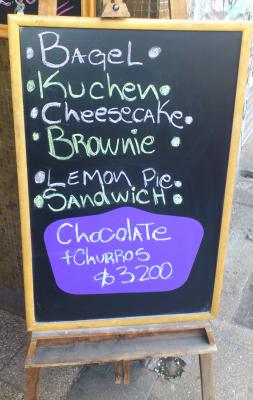 Bagel
Kuchen
Cheesecake
Brownie
Lemon Pie
Sandwich
Chocolate
+ Churros
$3200